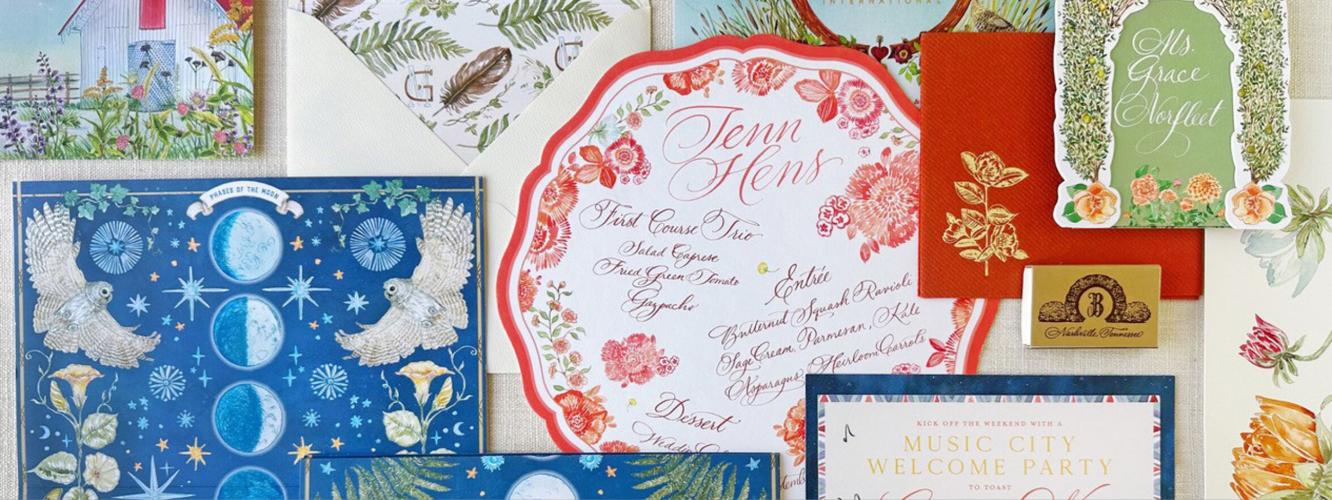 G
INTERNATIONAL
Ms.
Grace
Norfleet
Jenn
Hens
First Course Trio
Salad Caprese
Fried Green Tomato
Gazpacho
Entrée
Butternut Squash Ravioli
Sage Cream, Parmesan, Kale
Asparagus Heirloom Carrots
Dessert
PHASES OF THE MOON
B
Nashville, Tennessee
KICK OFF THE WEEKEND WITH A
MUSIC CITY
WELCOME PARTY
TO TOAST